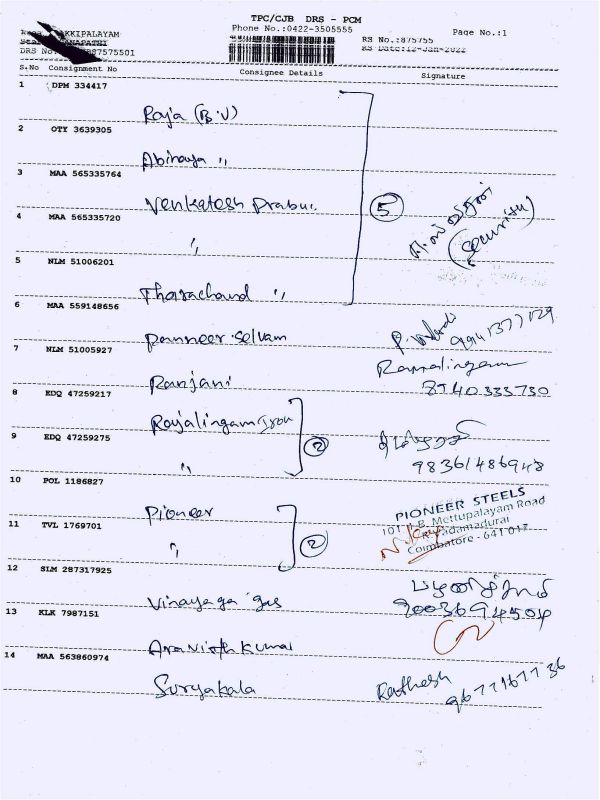 TPC/CJB DRS - PCM
Phone No.:0422-3505555
AKKIPALAYAM
RS No.:875755
Page No.:1
GANAPATHI
RS Date:12-Jan-2022
DRS No. 87575501
S.No Consignment No Consignee Details Signature
1 DPM 334417
Raja (B.V)
2 OTY 3639305
Abinaya "
3 MAA 565335764
Venkatesh Prabu
4 MAA 565335720
"
5
(Security)
5 NLM 51006201
Tharachand "
6 MAA 559148656
Panneer Selvam
9941377129
7 NLM 51005927
Ranjani
Ramalingam
8940333730
8 EDQ 47259217
Rajalingam Iron
9 EDQ 47259275
"
2
98361486948
10 POL 1186827
Pioneer
PIONEER STEELS
Mettupalayam Road
11 TVL 1769701
"
2
Vadamadurai
Coimbatore - 641 017
12 SLM 287317925
Vinayaga gas
9003694504
13 KLK 7987151
Aravinth Kumar
14 MAA 563860974
Suryakala
Rathesh
9677167736